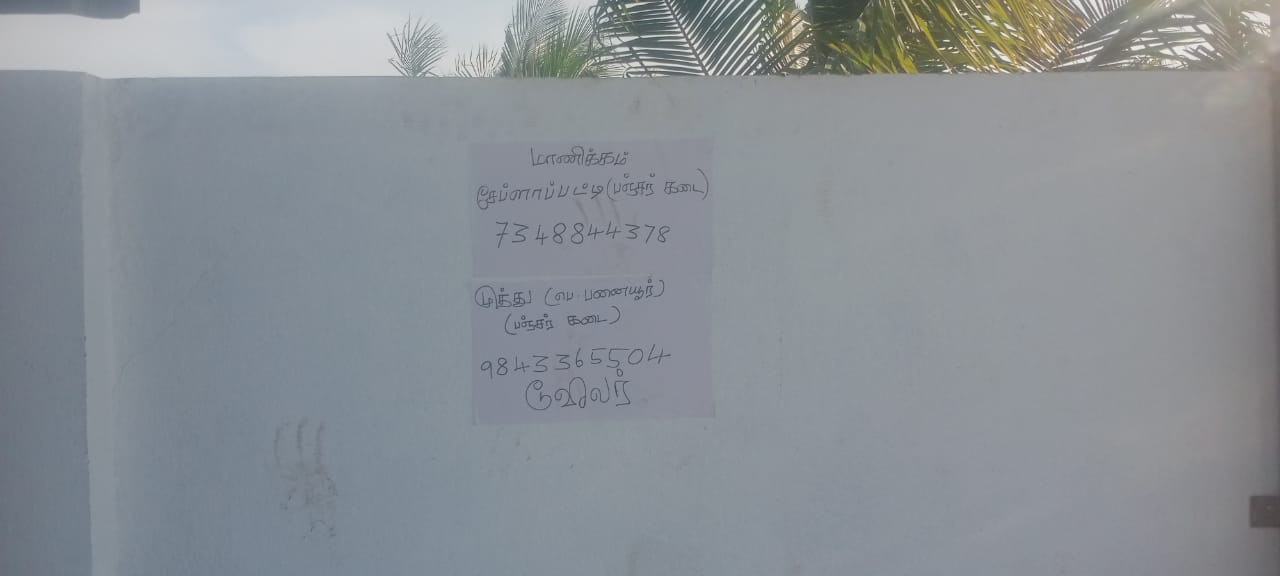 மாணிக்கம்
சேப்ளாப்பட்டி (பஞ்சர் கடை)
7348844378
முத்து (பெ. பனையூர்)
(பஞ்சர் கடை)
9843365504
டூவிலர்